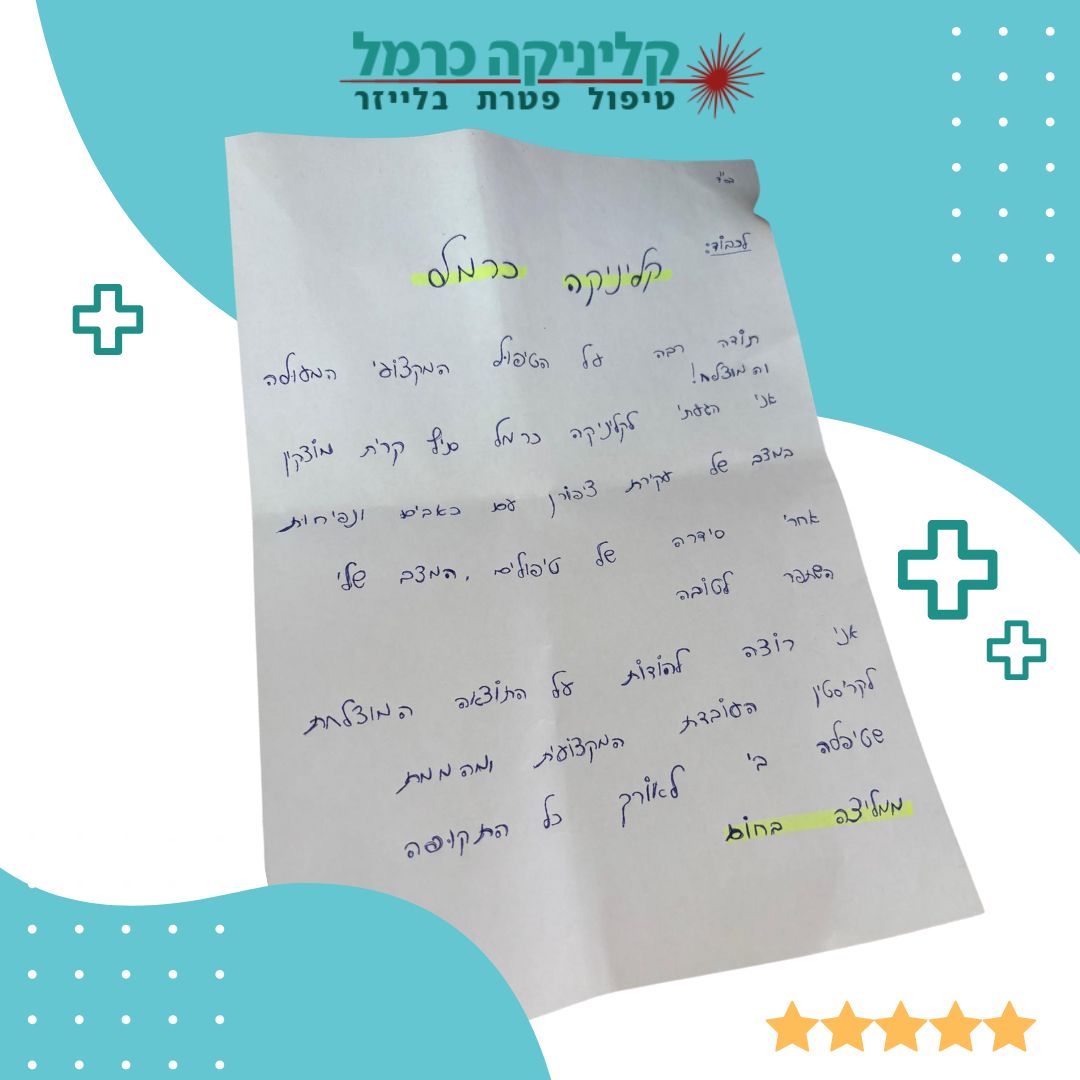 קליניקה כרמל
טיפול פטרת בלייזר
בס"ד
לכבוד:
קליניקה כרמל
תודה רבה על הטיפול המקצועי המעולה
והמוצלח!
אני הגעתי לקליניקה כרמל סניף קרית מוצקין
במצב של עקירת ציפורן עם כאבים ונפיחות
אחרי סידרה של טיפולים, המצב שלי
השתפר לטובה
אני רוצה להודות על התוצאה המוצלחת
לקריסטין העובדת המקצועית ומהממת
שטיפלה בי לאורך כל התקופה
ממליצה בחום